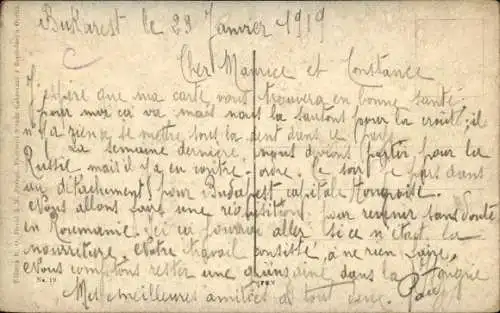 Bukarest le 23 Janvier 1919
Cher Maurice et Constance
J'espère que ma carte vous trouvera en bonne santé
pour moi ca va mais nous la sautons pour la croute; il
n'y a rien a se mettre sous la dent dans ce pays
La semaine dernière, nous devions partir pour la
Russie, mais il y a eu contre-ordre. Ce soir je pars dans
un détachement pour Budapest capitale Hongroise.
Nous allons faire une pour revenir sans doute
en Roumanie. Ici ca pourrait aller si ce n'était la
nourriture. Notre travail consiste a ne rien faire,
Nous comptons rester une quinzaine dans la Hongrie
Mes meilleures amitiés a tout
No. 19